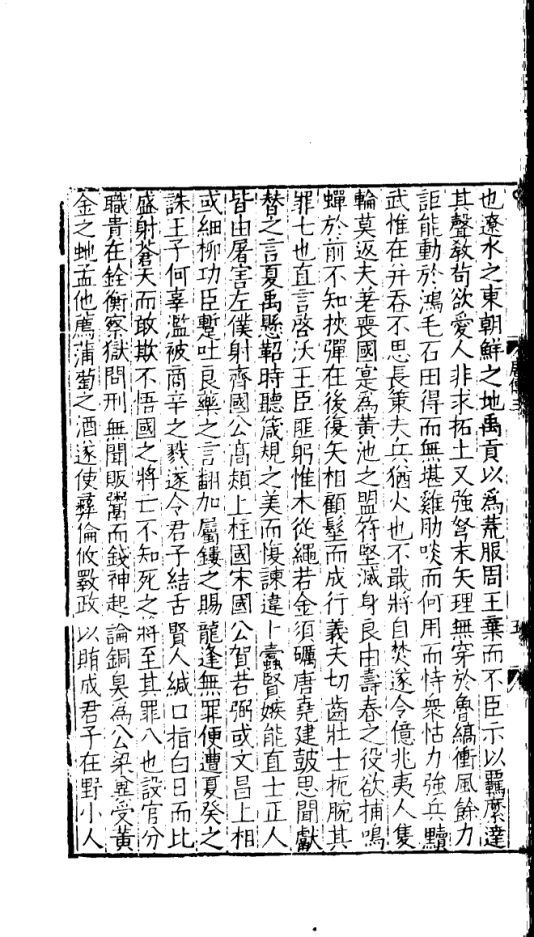 也遼水之東朝鮮之地禹貢以爲荒服周王棄而不臣示以羈縻達
其聲教苟欲愛人非求拓土又強弩末矢理無穿於魯縞衝風餘力
詎能動於鴻毛石田得而無堪雞肋啖而何用而恃衆怙力強兵黷
武惟在并吞不思長策夫兵猶火也不戢將自焚遂令億兆夷人隻
輪莫返夫差喪國寔爲黃池之盟符堅滅身良由壽春之役欲捕鳴
蟬於前不知挾彈在後復矢相顧髽而成行義夫切齒壯士扼腕其
罪七也直言啓沃王臣匪躬惟木從繩若金須礪唐堯建鼓思聞獻
替之言夏禹懸鞀時聽箴規之美而愎諫違卜蠹賢嫉能直士正人
皆由屠害左僕射齊國公高熲上柱國宋國公賀若弼或文昌上相
或細柳功臣蹔吐良藥之言翻加屬鏤之賜龍逢無罪便遭夏癸之
誅王子何辜濫被商辛之戮遂令君子結舌賢人緘口指白日而比
盛射蒼天而敢欺不悟國之將亡不知死之將至其罪八也設官分
職貴在銓衡察獄問刑無聞販鬻而錢神起論銅臭爲公梁冀受黃
金之虵孟他薦蒲萄之酒遂使彝倫攸斁政以賄成君子在野小人